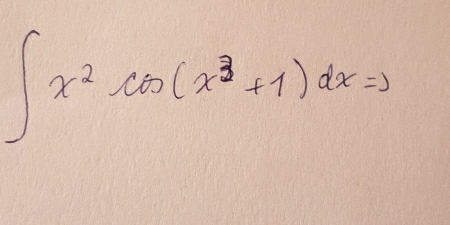 ∫ x² cos(x³+1) dx =>